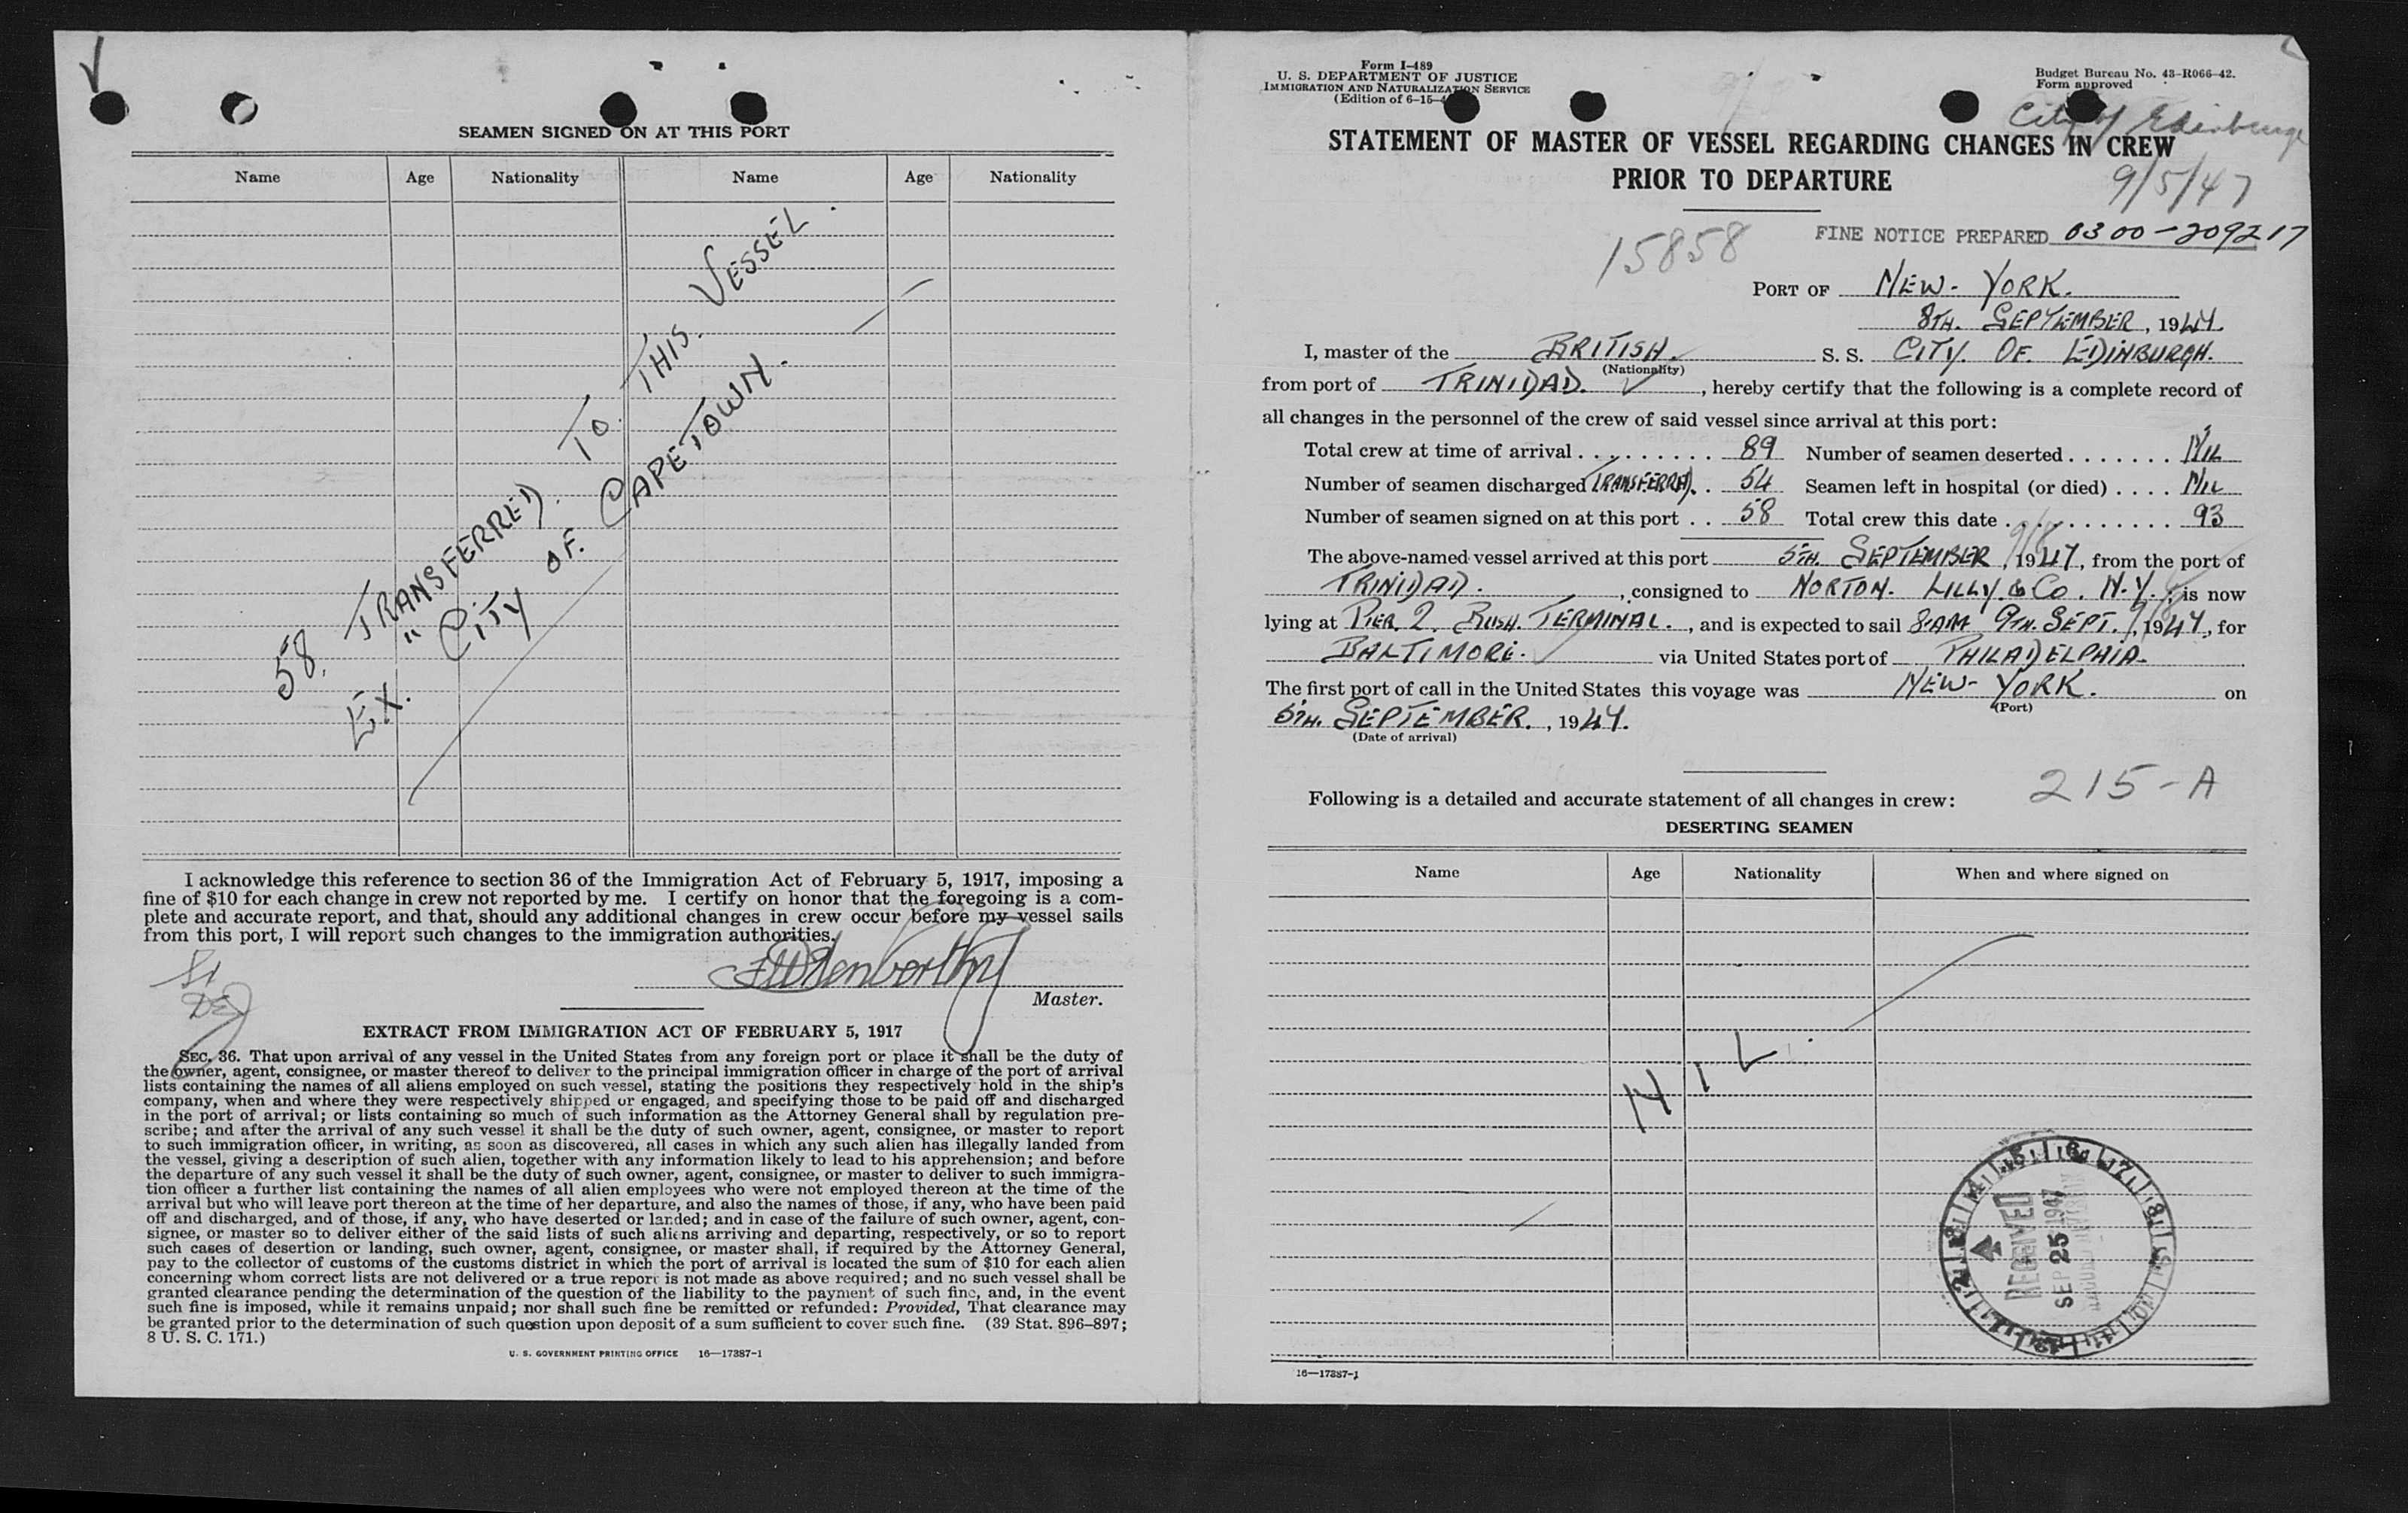 SEAMEN SIGNED ON AT THIS PORT
Name Age Nationality Name Age Nationality
58. TRANSFERRED. TO. THIS. VESSEL.
EX. "CITY OF. CAPETOWN.
I acknowledge this reference to section 36 of the Immigration Act of February 5, 1917, imposing a
fine of $10 for each change in crew not reported by me. I certify on honor that the foregoing is a com-
plete and accurate report, and that, should any additional changes in crew occur before my vessel sails
from this port, I will report such changes to the immigration authorities.
Master.
EXTRACT FROM IMMIGRATION ACT OF FEBRUARY 5, 1917
SEC. 36. That upon arrival of any vessel in the United States from any foreign port or place it shall be the duty of
the owner, agent, consignee, or master thereof to deliver to the principal immigration officer in charge of the port of arrival
lists containing the names of all aliens employed on such vessel, stating the positions they respectively hold in the ship's
company, when and where they were respectively shipped or engaged, and specifying those to be paid off and discharged
in the port of arrival; or lists containing so much of such information as the Attorney General shall by regulation pre-
scribe; and after the arrival of any such vessel it shall be the duty of such owner, agent, consignee, or master to report
to such immigration officer, in writing, as soon as discovered, all cases in which any such alien has illegally landed from
the vessel, giving a description of such alien, together with any information likely to lead to his apprehension; and before
the departure of any such vessel it shall be the duty of such owner, agent, consignee, or master to deliver to such immigra-
tion officer a further list containing the names of all alien employees who were not employed thereon at the time of the
arrival but who will leave port thereon at the time of her departure, and also the names of those, if any, who have been paid
off and discharged, and of those, if any, who have deserted or landed; and in case of the failure of such owner, agent, con-
signee, or master so to deliver either of the said lists of such aliens arriving and departing, respectively, or so to report
such cases of desertion or landing, such owner, agent, consignee, or master shall, if required by the Attorney General,
pay to the collector of customs of the customs district in which the port of arrival is located the sum of $10 for each alien
concerning whom correct lists are not delivered or a true report is not made as above required; and no such vessel shall be
granted clearance pending the determination of the question of the liability to the payment of such fine, and, in the event
such fine is imposed, while it remains unpaid; nor shall such fine be remitted or refunded: Provided, That clearance may
be granted prior to the determination of such question upon deposit of a sum sufficient to cover such fine. (39 Stat. 896–897;
8 U. S. C. 171.)
U. S. GOVERNMENT PRINTING OFFICE 16—17387-1
Form I-489
U. S. DEPARTMENT OF JUSTICE
IMMIGRATION AND NATURALIZATION SERVICE
(Edition of 6-15-4
Budget Bureau No. 43-R066-42.
Form approved
City of Edinburge
STATEMENT OF MASTER OF VESSEL REGARDING CHANGES IN CREW
PRIOR TO DEPARTURE
9/5/47
15858
FINE NOTICE PREPARED 0300-209217
PORT OF NEW- YORK.
8TH. SEPTEMBER, 1947.
I, master of the BRITISH. S. S. CITY. OF. EDINBURGH.
(Nationality)
from port of TRINIDAD., hereby certify that the following is a complete record of
all changes in the personnel of the crew of said vessel since arrival at this port:
Total crew at time of arrival . . . . . . . . . 89 Number of seamen deserted . . . . . . . NIL
Number of seamen discharged TRANSFERRED. . . 54 Seamen left in hospital (or died) . . . . NIL
Number of seamen signed on at this port . . 58 Total crew this date . . . . . . . . . . . 93
The above-named vessel arrived at this port 5TH. SEPTEMBER, 1947, from the port of
TRINIDAD., consigned to NORTON. LILLY. & Co. N.Y.; is now
lying at PIER. 2. BUSH. TERMINAL., and is expected to sail 8.AM 9TH. SEPT., 1947, for
BALTIMORE. via United States port of PHILADELPHIA.
The first port of call in the United States this voyage was NEW- YORK. on
(Port)
5TH. SEPTEMBER., 1947.
(Date of arrival)
215-A
Following is a detailed and accurate statement of all changes in crew:
DESERTING SEAMEN
Name Age Nationality When and where signed on
NIL.
RECEIVED
SEP 25 1947
16—17387-1